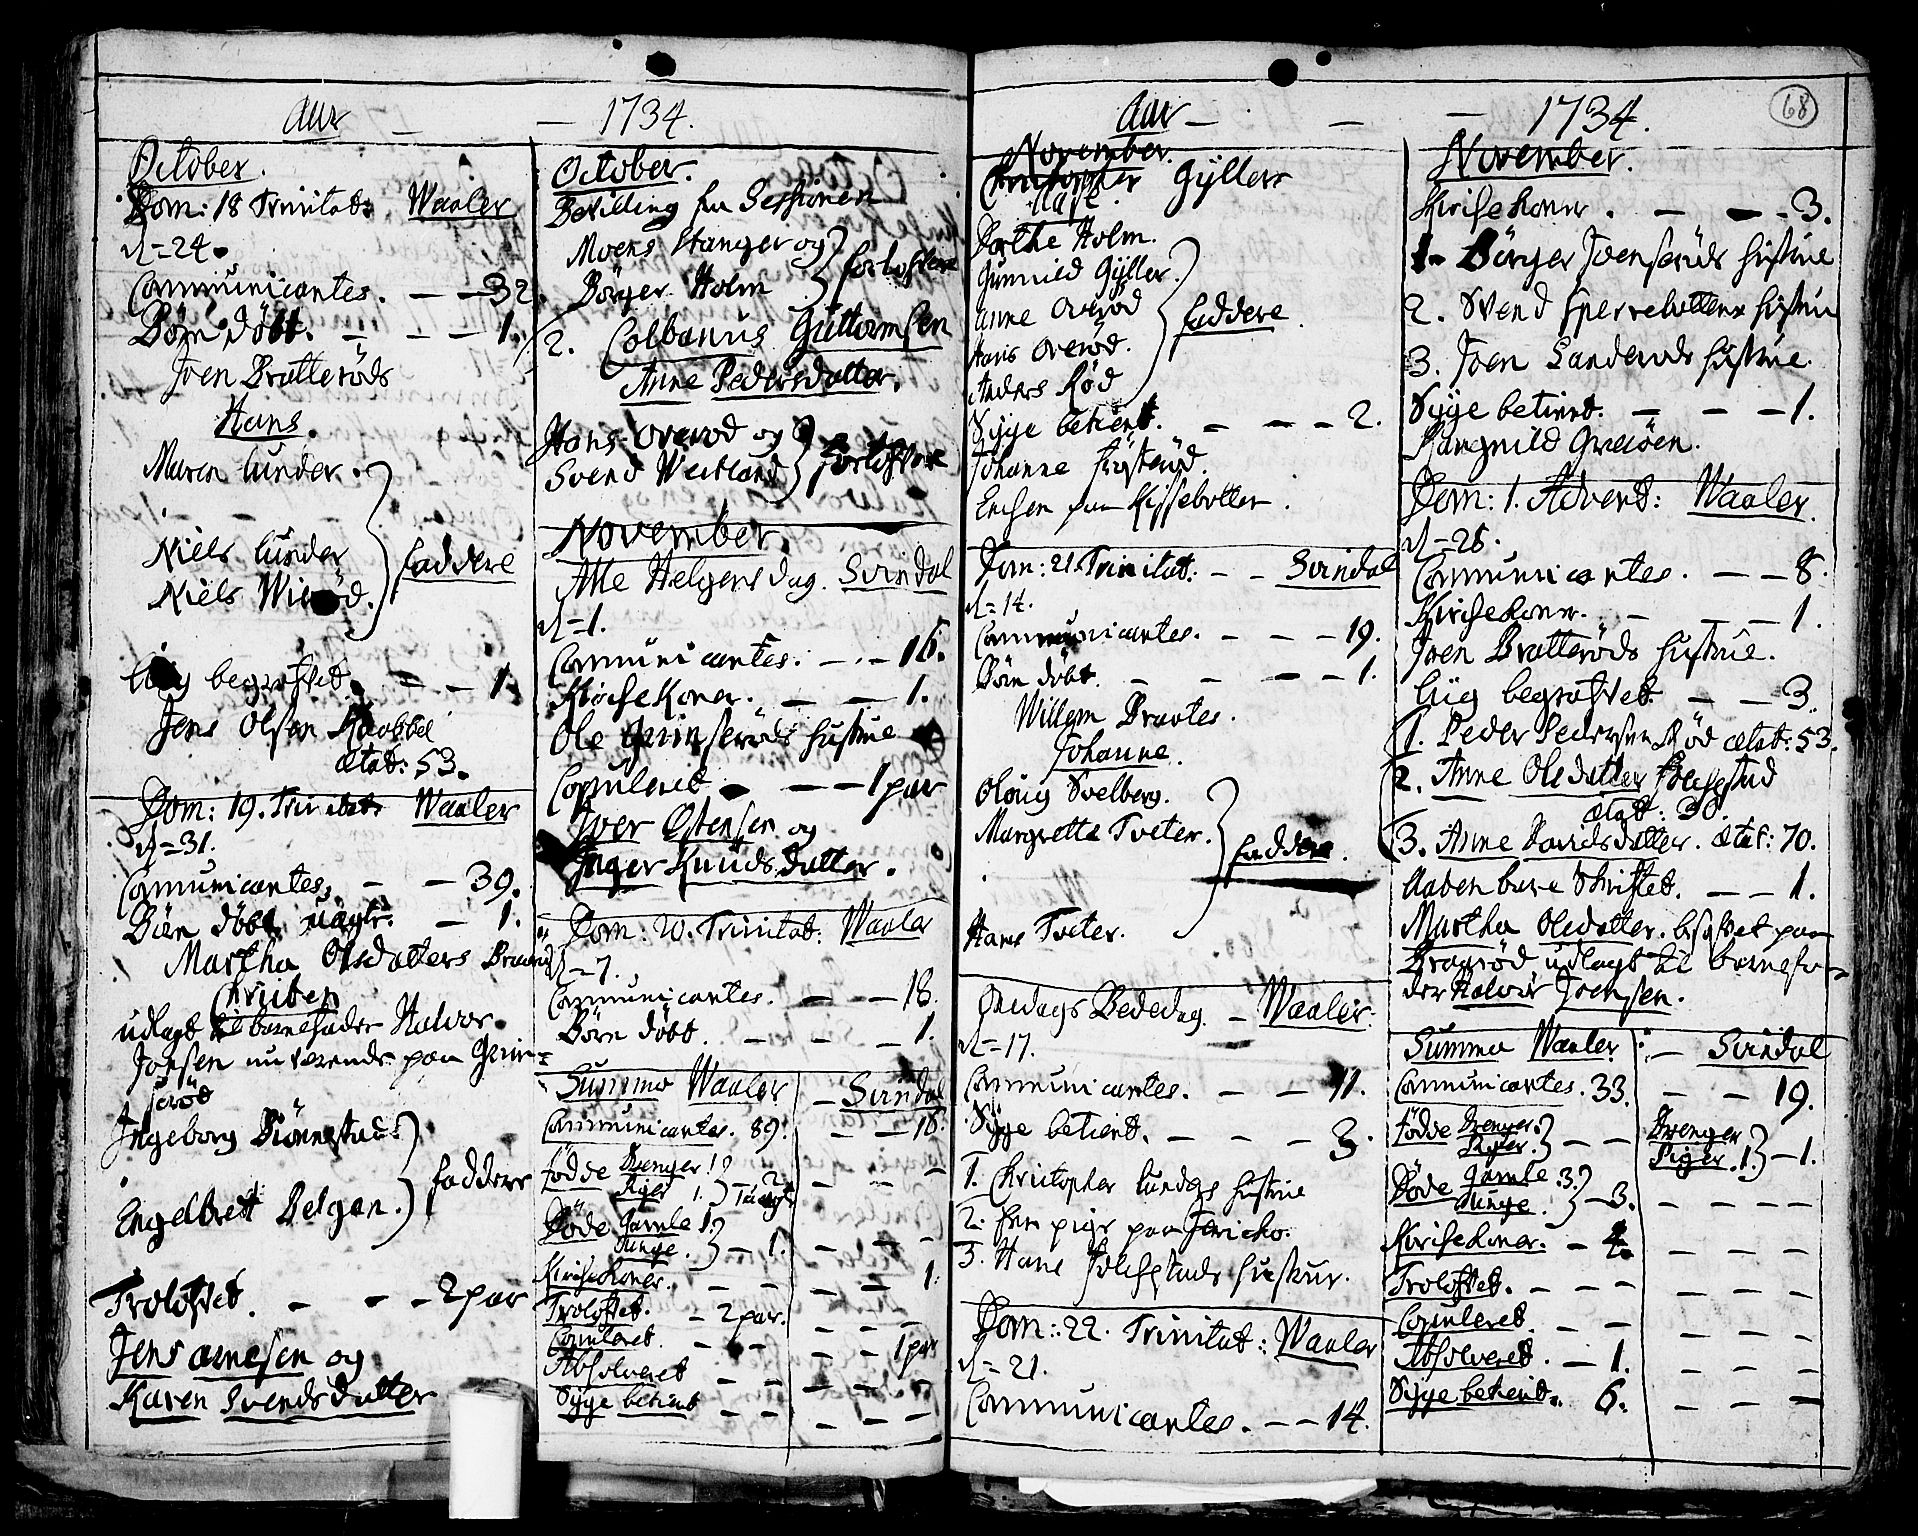 Aar — — 1734.
October.
Dom: 18 Trinitat: Waaler
d=24.
Communicantes. — — 32.
Börn döbt. — — — 1.
Joen Bratteröds
Hans.
Maren Lunder.
Niels Lunder
Niels Wieröd.
faddere
begrafvet. — — 1.
Jens Olsen Knobbel
ætat: 53.
Dom: 19. Trinitat: Waaler
d=31.
Comunicantes. — — 39.
Börn döbt uægte. — 1.
Martha Olsdatters
Christen
udlagt til barnefader Halvor
Jonsen nu værende paa Grim=
seröd
Ingeborg Biönnestad
Engelbret Delgen.
faddere
Troloftet. — — — 2 par
Jens Arnesen og
Karen Svendsdatter
October.
Bevilling fra Sessionen
Moens Stanger og
Börger Holm
forloftere
2. Colbanus Guttormsen
Anne Pedersdatter.
Hans Overöd og
Svend Weitland
forloftere
November.
Alle Helgens dag. Svindal
d=1.
Comunicantes. — — 16.
Kirkekoner. — — 1.
Ole Grimseröds hustrue
Copuleret — — 1 par
Iver Ostensen og
Inger Knudsdatter.
Dom: 20. Trinitat: Waaler
d=7.
Comunicantes. — — 18.
Börn döbt. — — — 1.
Summa Waaler — Svindal
Communicantes. 89. — — 16.
Födde Drenger 1.
Piger 1. 2
— — —
Döde Gamle 1.
Unge. — 1. — — —
Kirkekoner. — — — — 1.
Troloftet. — 2 par. — — —
Copuleret. — — — — 1 par
Absolveret — — — — —
Syge betient — — — — —
Aar — — — 1734.
68
November.
Christopher Gyllers
Aase.
Dorthe Holm.
Gunnild Gyller.
Anne Overöd
Hans Overöd.
Anders Röd
faddere.
Syge betient. — — — 2.
Johanne
Enken paa Kissebotten.
Dom: 21. Trinitat. — — Svindal
d=14.
Communicantes. — — — 19.
Börn döbt. — — — — 1.
Willem Braates.
Johanne.
Oloug Svelberg.
Margrette Tveter.
faddere.
Hans Tveter.
Onsdags Bededag. — Waaler.
d=17.
Communicantes. — — — 11.
Syge betient. — — — 3.
1. Christopher Lunders hustrue
2. Een pige paa Jericho.
3. Hans Folkestads hustrue.
Dom: 22. Trinitat: Waaler
d=21.
Communicantes. — — 14.
November.
Kirkekoner. — — — 3.
1. Börger Joenseröds hustrue
2. Svend Sperrebottens hustru
3. Joen Sanderöds hustrue.
Syge betient. — — — 1.
Rangnild
Dom: 1. Advent: Waaler.
d=28.
Communicantes. — — 8.
Kirkekoner. — — — 1.
Joen Bratteröds hustrue.
Liig begrafvet — — 3.
1. Peder Pedersen Röd ætat: 53.
2. Anne Olsdatter Folkestad
ætat: 30.
3. Anne Davidsdatter. ætat: 70.
Aabenbare Skriftet. — — 1.
Martha Olsdatter. besofvet paa
Bragröd udlagt til barnefa=
der Halvor Joensen.
Summa Waaler — Svindal
Comunicantes. 33. — — 19.
Födde Drenger.
Piger. — — Drenger
Piger. 1. — 1.
Döde Gamle 3.
Unge. — 3. — — — —
Kirkekoner. — 4. — — — —
Troloftet. — — — — — —
Copuleret. — — — — —
Absolveret. — 1. — — —
Syge betient. 6. — — —